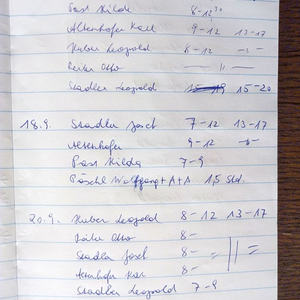 Past Hilda 8-12³⁰
Altenhofer Karl 9-12 13-17
Huber Leopold 8-12 -"-
Reiter Otto "
Stadler Leopold 15-19 15-20
18.9. Stadler Josef 7-12 13-17
Altenhofer 9-12 -"-
Past Hilda 7-9
Pöschl Wolfgang + A + A 1,5 Std.
20.9. Huber Leopold 8-12 13-17
Reiter Otto 8-
Stadler Josef 8-
Altenhofer Karl 8-
Stadler Leopold 7-9